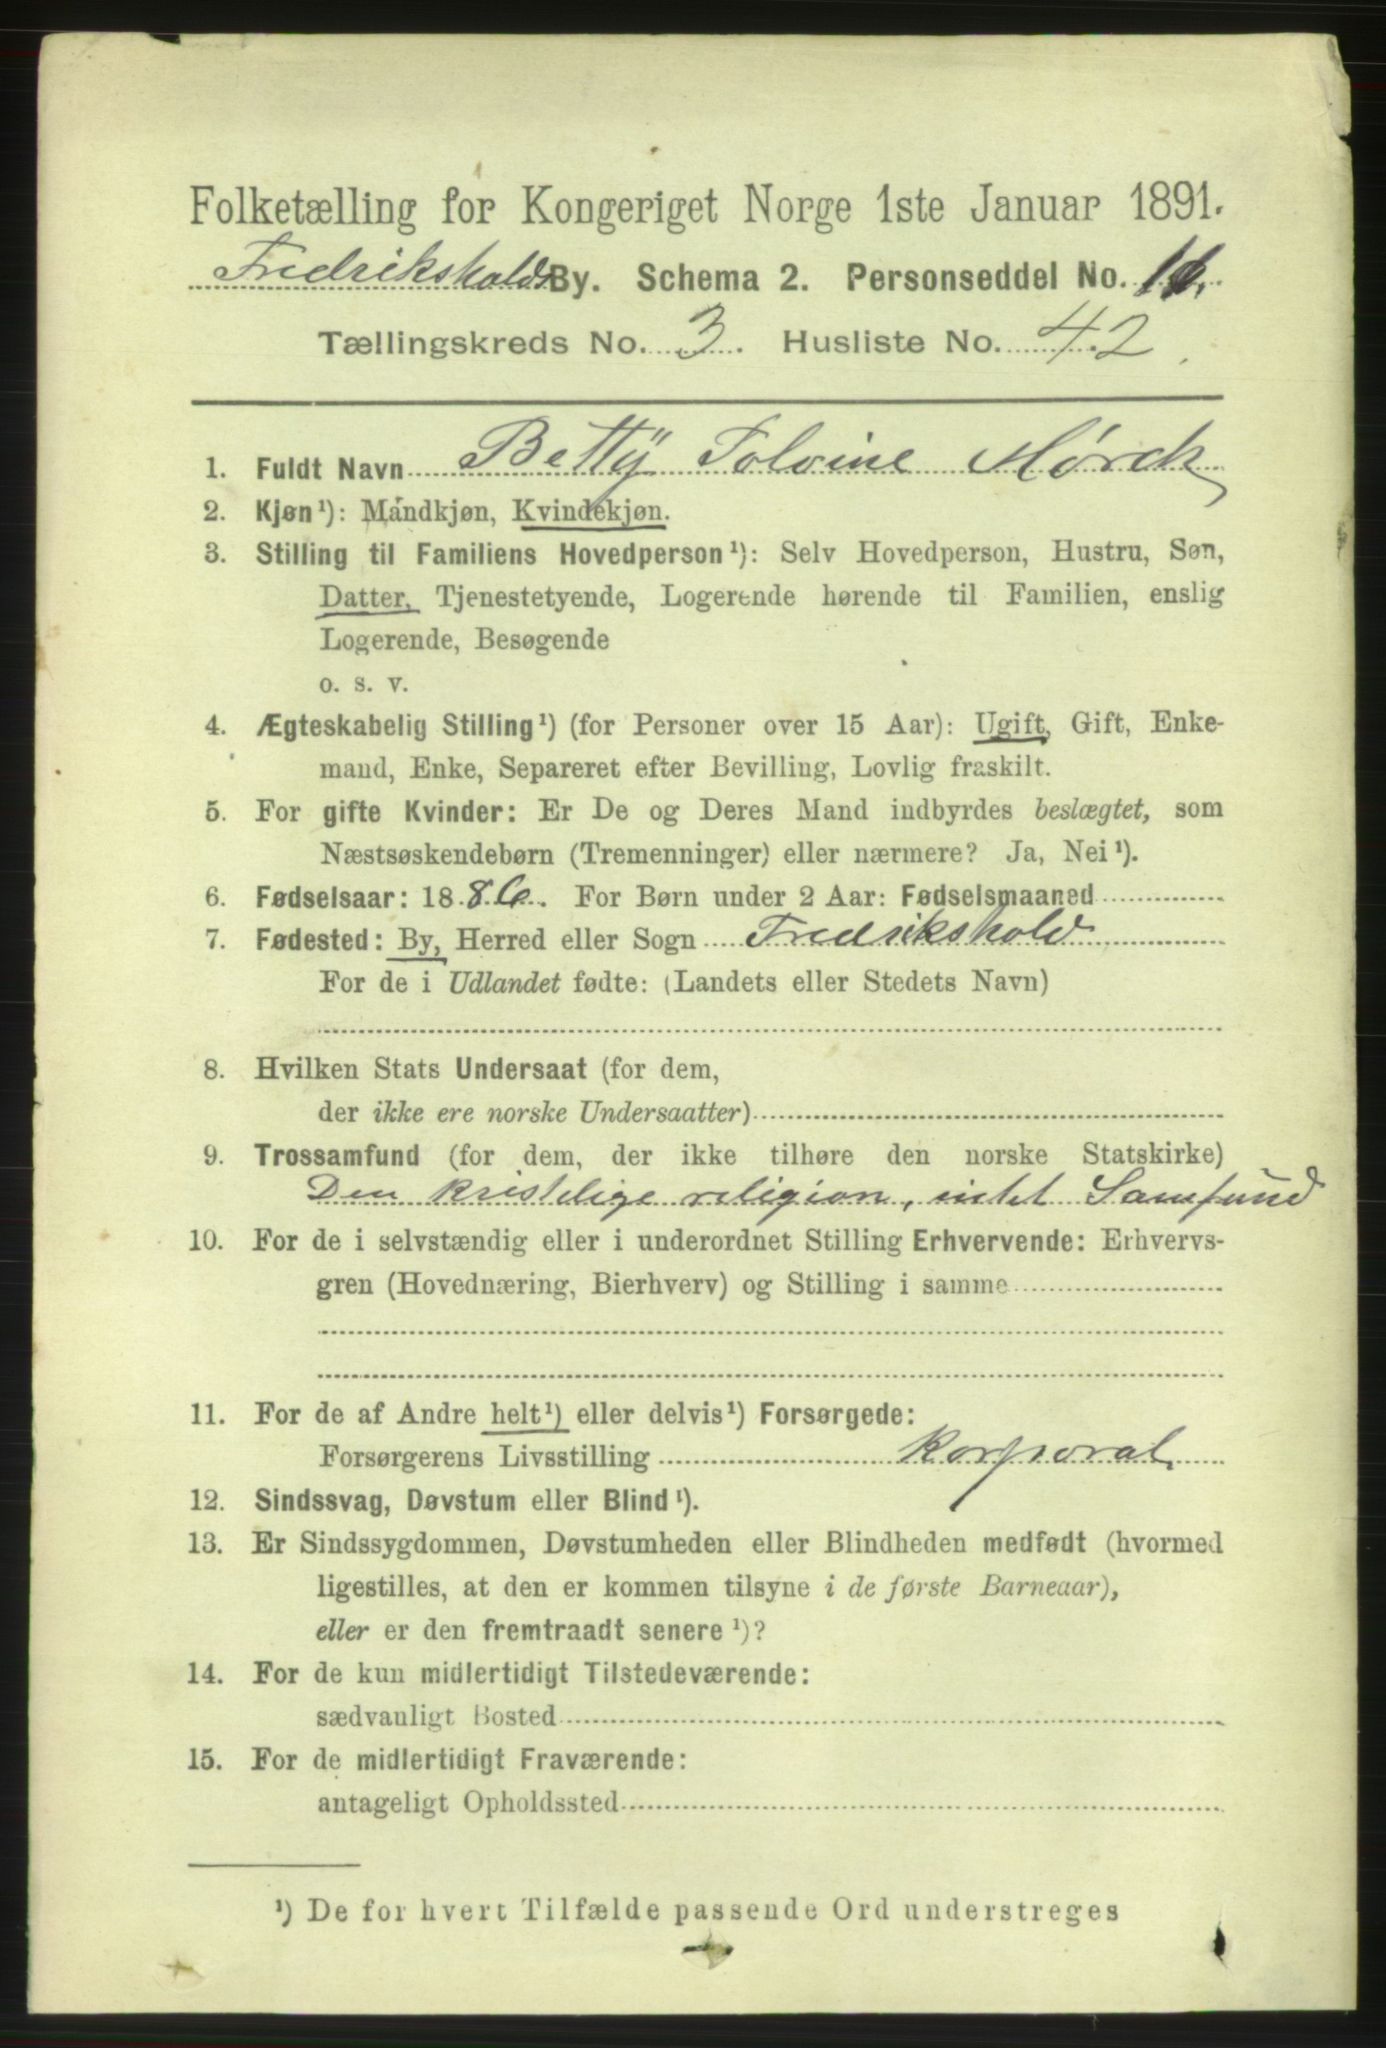 Folketælling for Kongeriget Norge 1ste Januar 1891.
Fredrikshalds By. Schema 2. Personseddel No.
Tællingskreds No. 3. Husliste No. 42
1. Fuldt Navn Betty Tolvine Mørck
2. Kjøn¹): Mandkjøn, Kvindekjøn.
3. Stilling til Familiens Hovedperson¹): Selv Hovedperson, Hustru, Søn,
Datter, Tjenestetyende, Logerende hørende til Familien, enslig
Logerende, Besøgende
o. s. v.
4. Ægteskabelig Stilling¹) (for Personer over 15 Aar): Ugift, Gift, Enke-
mand, Enke, Separeret efter Bevilling, Lovlig fraskilt.
5. For gifte Kvinder: Er De og Deres Mand indbyrdes beslægtet, som
Næstsøskendebørn (Tremenninger) eller nærmere? Ja, Nei¹).
6. Fødselsaar: 1886. For Børn under 2 Aar: Fødselsmaaned
7. Fødested: By, Herred eller Sogn Fredrikshald
For de i Udlandet fødte: (Landets eller Stedets Navn)
8. Hvilken Stats Undersaat (for dem,
der ikke ere norske Undersaatter)
9. Trossamfund (for dem, der ikke tilhøre den norske Statskirke)
Den kristelige religion, intet Samfund
10. For de i selvstændig eller i underordnet Stilling Erhvervende: Erhvervs-
gren (Hovednæring, Bierhverv) og Stilling i samme
11. For de af Andre helt¹) eller delvis¹) Forsørgede:
Forsørgerens Livsstilling Korporal
12. Sindssvag, Døvstum eller Blind¹).
13. Er Sindssygdommen, Døvstumheden eller Blindheden medfødt (hvormed
ligestilles, at den er kommen tilsyne i de første Barneaar),
eller er den fremtraadt senere¹)?
14. For de kun midlertidigt Tilstedeværende:
sædvanligt Bosted
15. For de midlertidigt Fraværende:
antageligt Opholdssted
¹) De for hvert Tilfælde passende Ord understreges